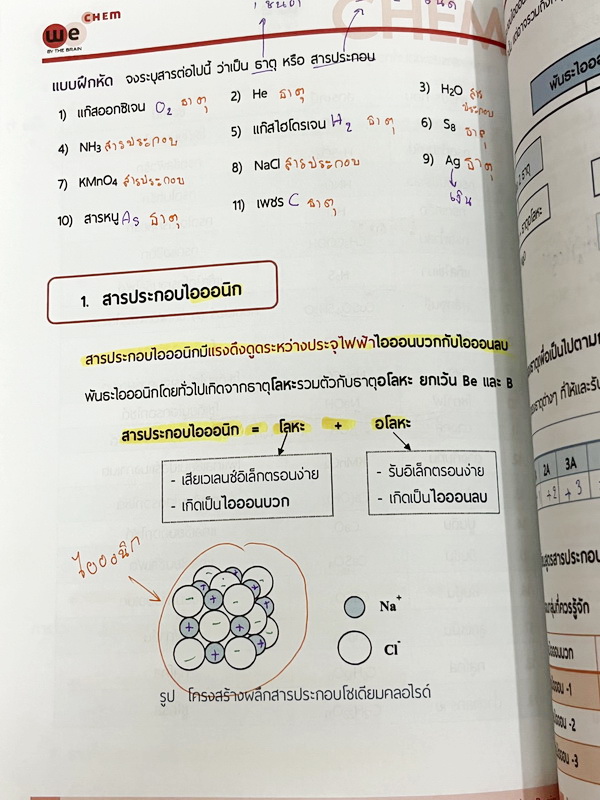 CHEM
we
BY THE BRAIN
CHEM
แบบฝึกหัด จงระบุสารต่อไปนี้ ว่าเป็น ธาตุ หรือ สารประกอบ
1) แก๊สออกซิเจน O2 ธาตุ
2) He ธาตุ
3) H2O สารประกอบ
4) NH3 สารประกอบ
5) แก๊สไฮโดรเจน H2 ธาตุ
6) S8 ธาตุ
7) KMnO4 สารประกอบ
8) NaCl สารประกอบ
9) Ag ธาตุ
เงิน
10) สารหนู As ธาตุ
11) เพชร C ธาตุ
1. สารประกอบไอออนิก
สารประกอบไอออนิกมีแรงดึงดูดระหว่างประจุไฟฟ้าไอออนบวกกับไอออนลบ
พันธะไอออนิกโดยทั่วไปเกิดจากธาตุโลหะรวมตัวกับธาตุอโลหะ ยกเว้น Be และ B
สารประกอบไอออนิก = โลหะ + อโลหะ
- เสียเวเลนซ์อิเล็กตรอนง่าย
- เกิดเป็นไอออนบวก
- รับอิเล็กตรอนง่าย
- เกิดเป็นไอออนลบ
ไอออนิก
Na+
Cl-
รูป โครงสร้างผลึกสารประกอบโซเดียมคลอไรด์
พันธะไออ
2A 3A
+2 +3
นสูตรสารประกอบ
ที่ควรรู้จัก
ออนบวก
-1
-2
-3